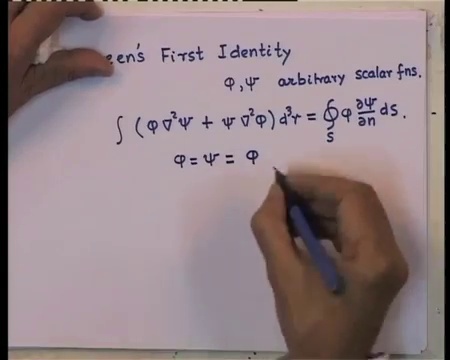 een's First Identity
φ, ψ arbitrary scalar fns.
∫ (φ ∇²ψ + ψ ∇²φ) d³r = ∮_S φ ∂ψ/∂n ds.
φ = ψ = φ